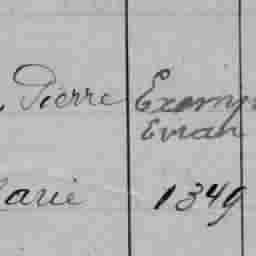 Pierre Exemp
Evian
arie 1349